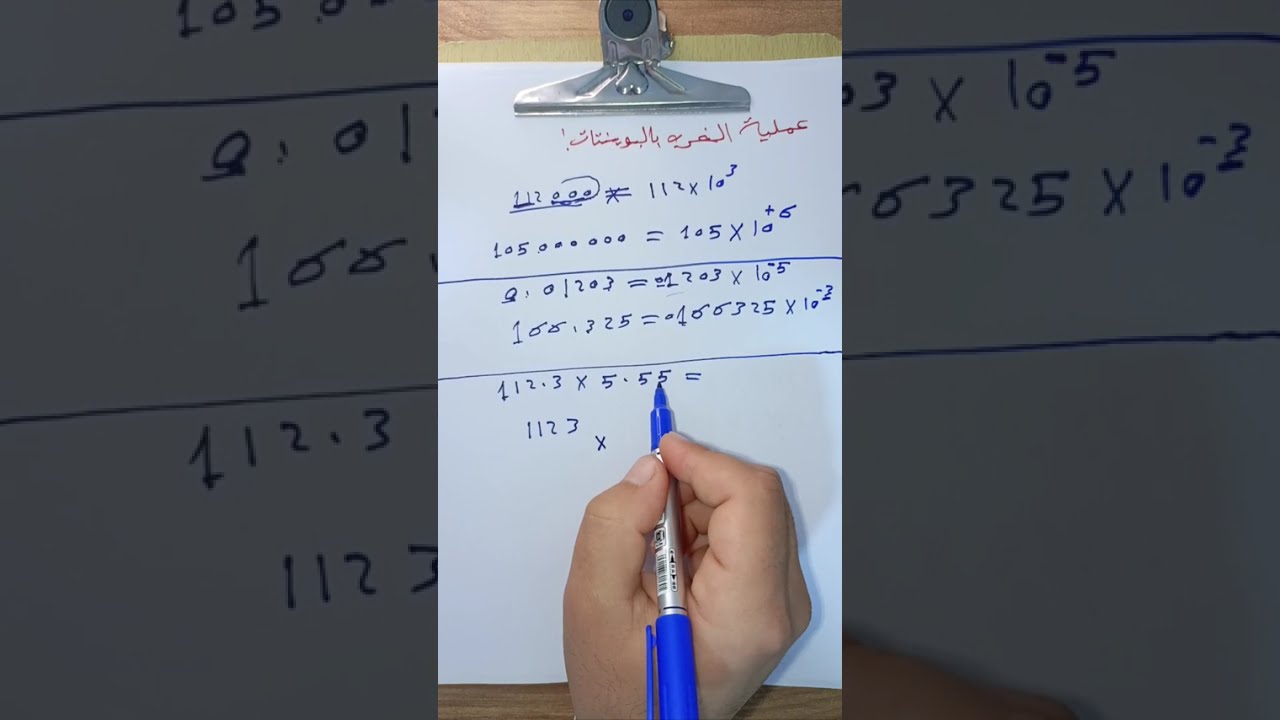 عملية الضرب بالبوينتات!
112000 = 112 × 10³
105.000000 = 105 × 10⁺⁶
0.01203 = 01203 × 10⁻⁵
166.325 = 166325 × 10⁻³
112.3 × 5.55 =
1123 ×